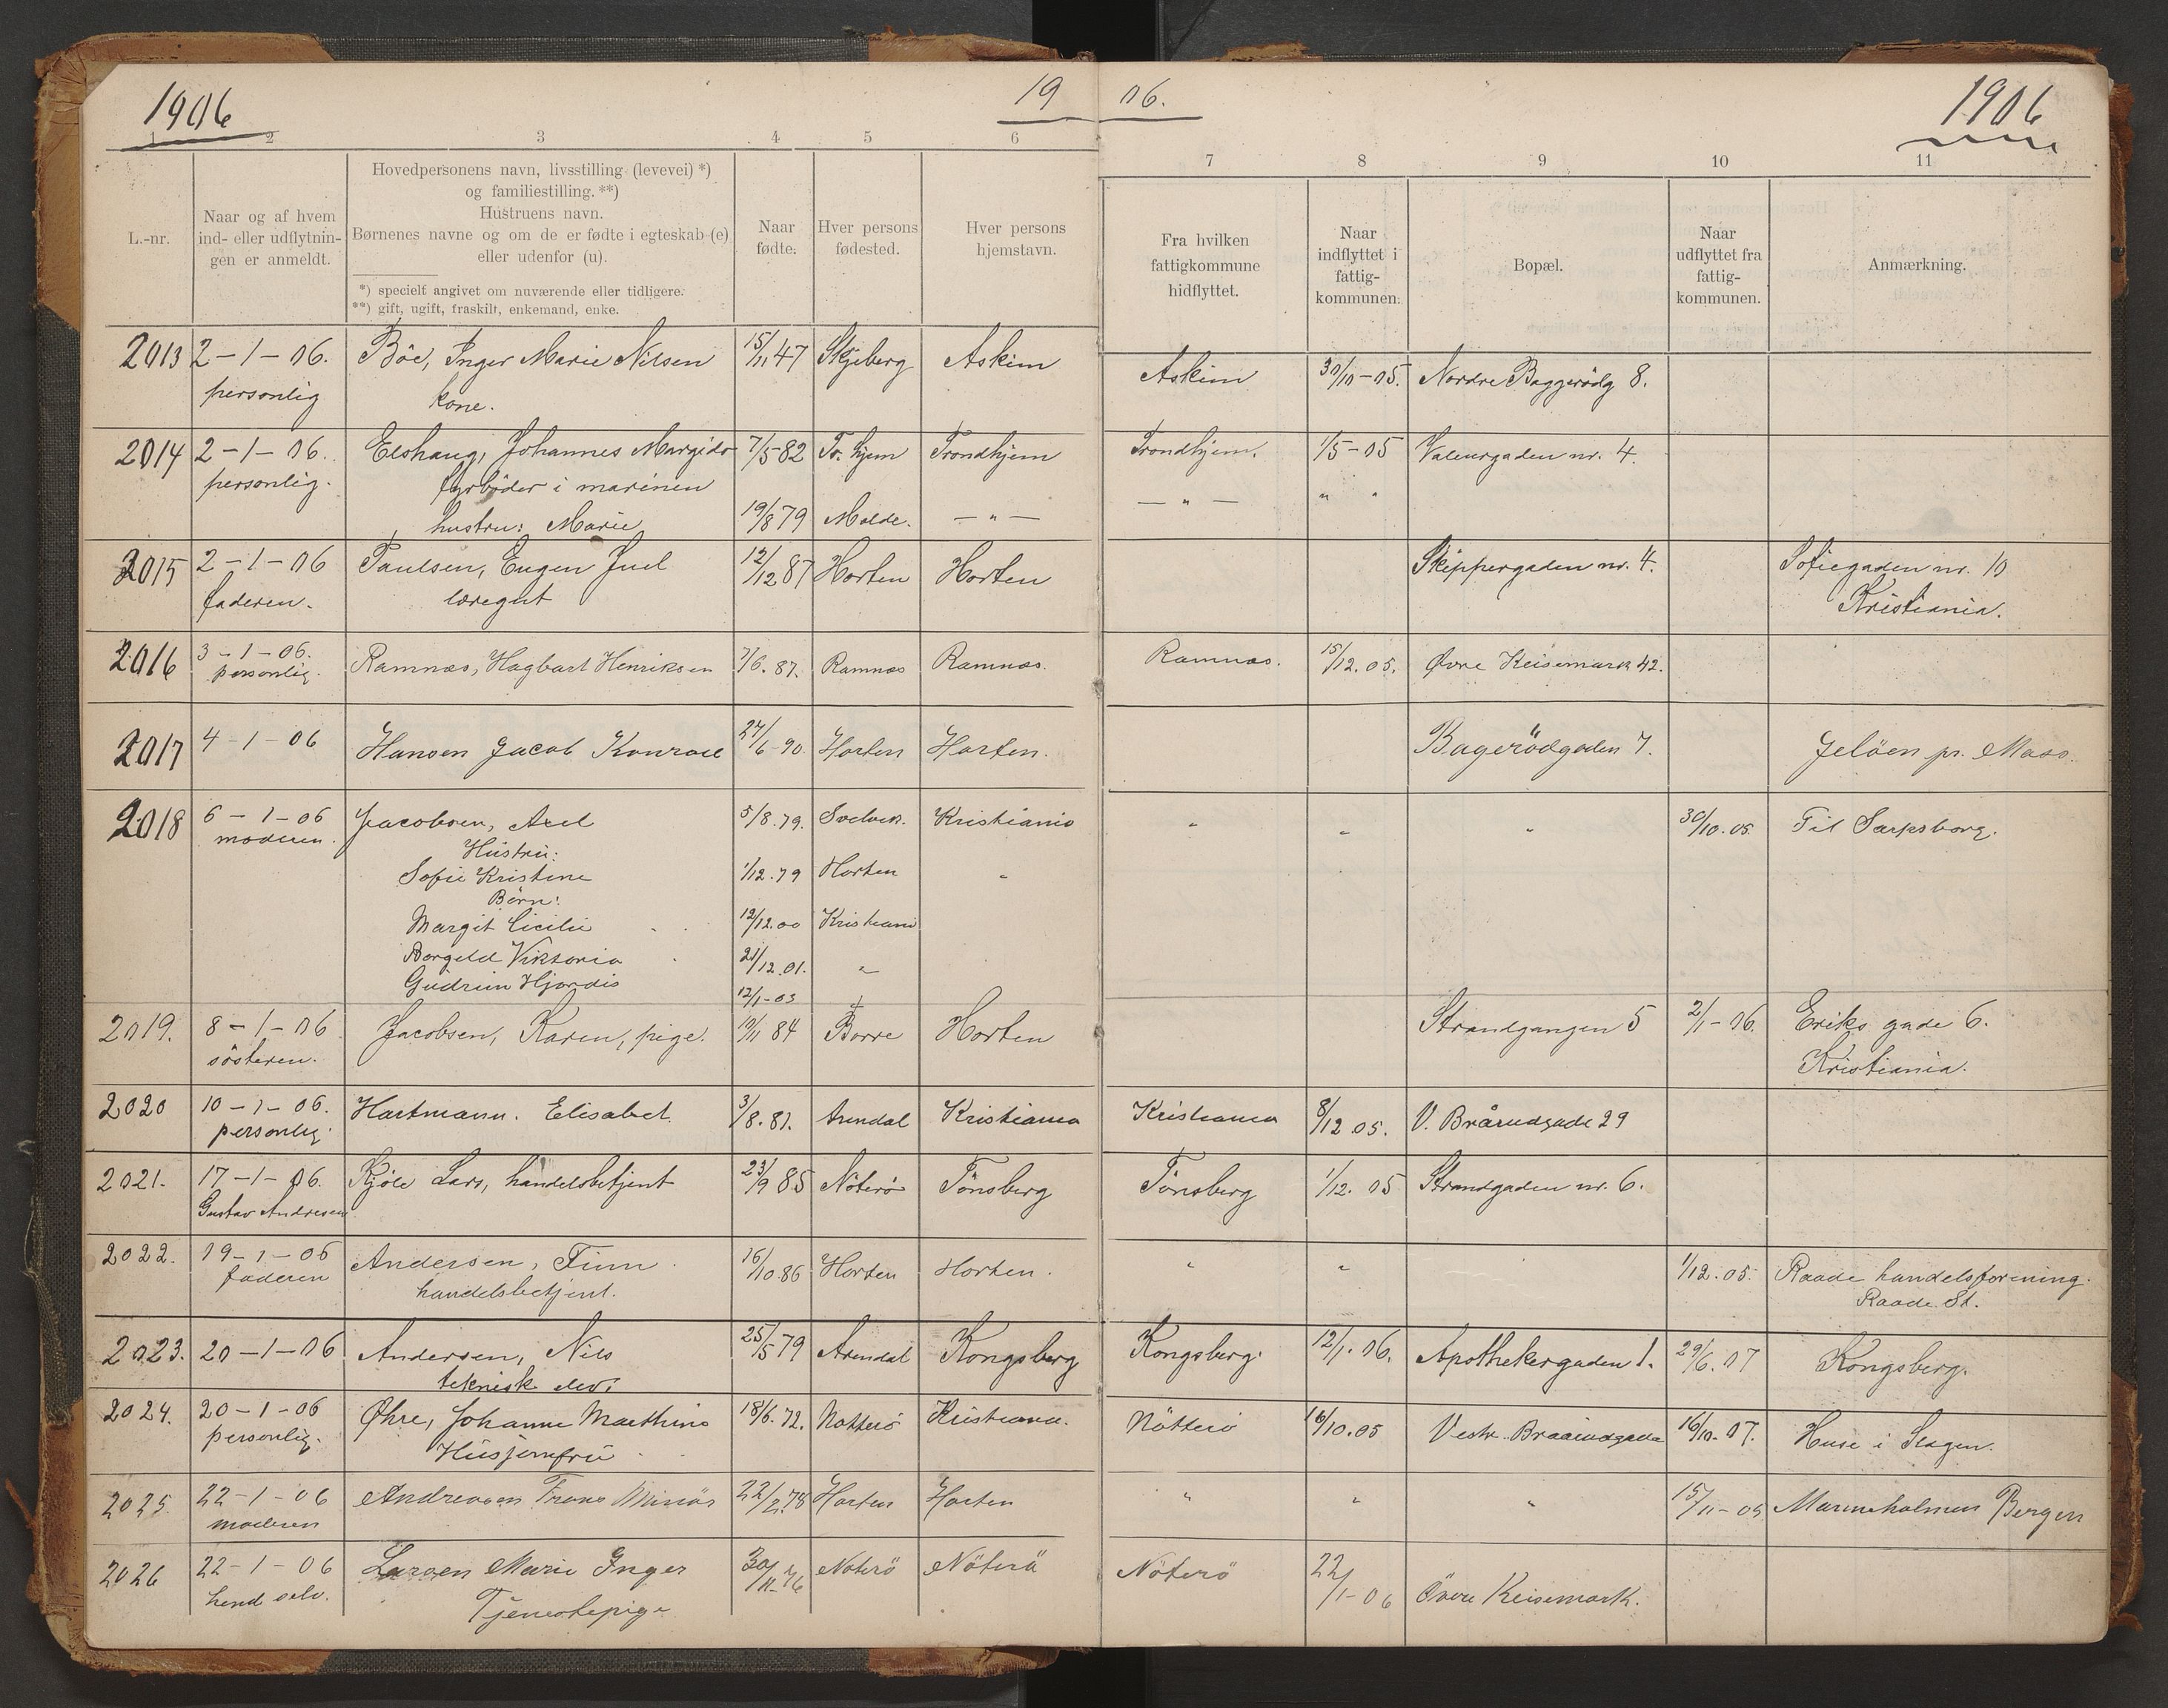 1906
19 06.
1906
1 2 3 4 5 6 7 8 9 10 11
L.-nr.
Naar og af hvem
ind- eller udflytnin-
gen er anmeldt.
Hovedpersonens navn, livsstilling (levevei) *)
og familiestilling. **)
Hustruens navn.
Børnenes navne og om de er fødte i egteskab (e)
eller udenfor (u).
*) specielt angivet om nuværende eller tidligere.
**) gift, ugift, fraskilt, enkemand, enke.
Naar
fødte.
Hver persons
fødested.
Hver persons
hjemstavn.
Fra hvilken
fattigkommune
hidflyttet.
Naar
indflyttet i
fattig-
kommunen.
Bopæl.
Naar
udflyttet fra
fattig-
kommunen.
Anmærkning.
2013 2-1-06. Böe, Inger Marie Nilsen 15/11 47 Skjeberg Askim Askim 30/10-05. Nordre Baggerödg 8.
personlig kone.
2014 2-1-06. Elshaug, Johannes Margido 7/5-82 Tr.hjem Trondhjem Trondhjem. 1/5-05 Valeurgaden nr. 4.
personlig. fyrböder i marinen — " — " "
hustru: Marie 19/8 79 Molde. — " —
2015 2-1-06 Paulsen, Eugen Juel 12/12 87 Horten Horten Skippergaden nr. 4. Sofiegaden nr. 10
faderen. læregut Kristiania.
2016 3-1-06. Ramnæs, Hagbart Henriksen 7/6.87. Ramnæs Ramnæs. Ramnæs. 15/12.05. Øvre Keisemark 42.
personlig.
2017 4-1-06 Hansen Jacob Konrad 27/6-90. Horten Horten. Bagerödgaden 7. Jelöen pr. Moss.
2018 6-1-06 Jacobsen, Axel 5/8.79. Svelvik. Kristiania " " " 30/10.05. Til Sarpsborg.
moderen. Hustru:
Sofie Kristine 1/12.79 Horten "
Börn:
Margit Cicilie 12/12.00 Kristiani
Borgeld Viktoria 21/12.01. "
Gudrun Hjördis 12/1-03
2019. 8-1-06 Jacobsen, Karen, pige. 19/11 84 Borre Horten Strandgangen 5 2/1-06. Eriks gade 6.
søsteren. Kristiania.
2020 10-1-06. Hartmann. Elisabet. 3/8.81. Arendal Kristiania Kristiania 8/12 05. V. Brårudgade 29
personlig.
2021. 17-1-06. Kjöle Lars, handelsbetjent 23/9 85 Nöterö Tönsberg Tönsberg 1/12. 05 Strandgaden nr. 6.
Gustav Andresen
2022. 19-1-06 Andersen, Finn. 16/10 86 Horten Horten. " " 1/12.05. Raade handelsforening.
faderen handelsbetjent. Raade St.
2023. 20-1-06 Andersen, Nils 25/5 79 Arendal Kongsberg Kongsberg. 12/1.06. Apothekergaden 1. 29/6.07 Kongsberg.
teknisk elev.
2024. 20-1-06 Øhre, Johanne Marthine 18/6.72. Nötterö Kristiania. Nötterö 16/10.05 Vestr. Braarudgade 16/10.07. Huse i Slagen.
personlig. Husjomfru
2025. 22-1-06 Andreasen Frans 22/2.78 Horten Horten " " " 15/11-05 Marineholmen Bergen
moderen
2026 22-1-06 Larsen Marie Inger 30/11-76 Nöterö Nöterö Nöterö 22/1-06 Övre Keisemark.
hend selv. Tjenestepige